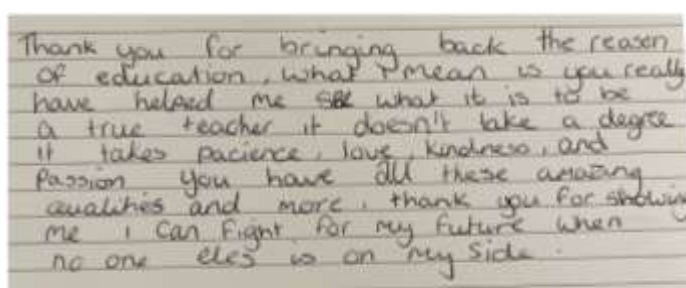 Thank you for bringing back the reasen
of education, what I mean is you really
have helped me see what it is to be
a true teacher it doesn't take a degree
it takes pacience, love, kindness, and
Passion you have all these amazing
qualities and more, thank you for showing
me i can fight for my future when
no one eles is on my side.